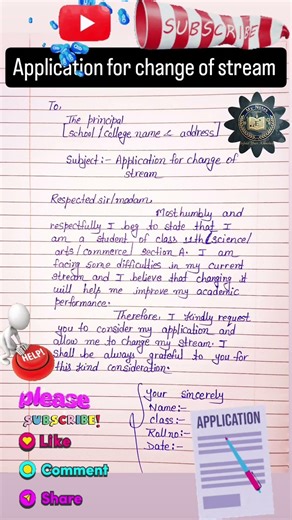 SUBSCRIBE
Application for change of stream
To,
The principal
[school/college name & address]
Subject:- Application for change of
stream
Respected sir/madam,
Most humbly and
respectfully I beg to state that I
am a student of class 11th (science/
arts/commerce) section A. I am
facing some difficulties in my current
stream and I believe that changing it
will help me improve my academic
performance.
Therefore, I kindly request
you to consider my application and
allow me to change my stream. I
shall be always grateful to you for
this kind consideration.
Your sincerely
Name:-
Class:-
Roll no:-
Date:-
HELP!
please
SUBSCRIBE!
Like
Comment
Share
APPLICATION